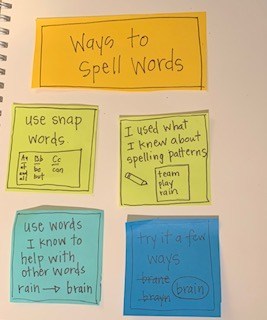 Ways to
Spell Words
use snap
words
Aa Bb Cc
be can
but
I used what
I knew about
spelling patterns
team
play
rain
use words
I know to
help with
other words
rain → brain
try it a few
ways
brane
brayn
brain